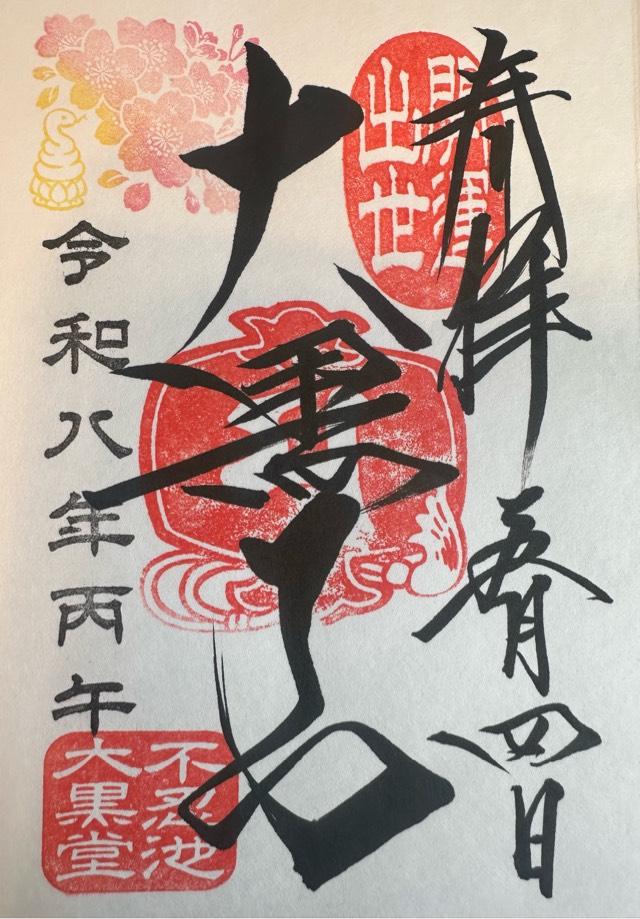 奉拝
開運
出世
五月四日
大黒天
令和八年丙午
不忍池
大黒堂